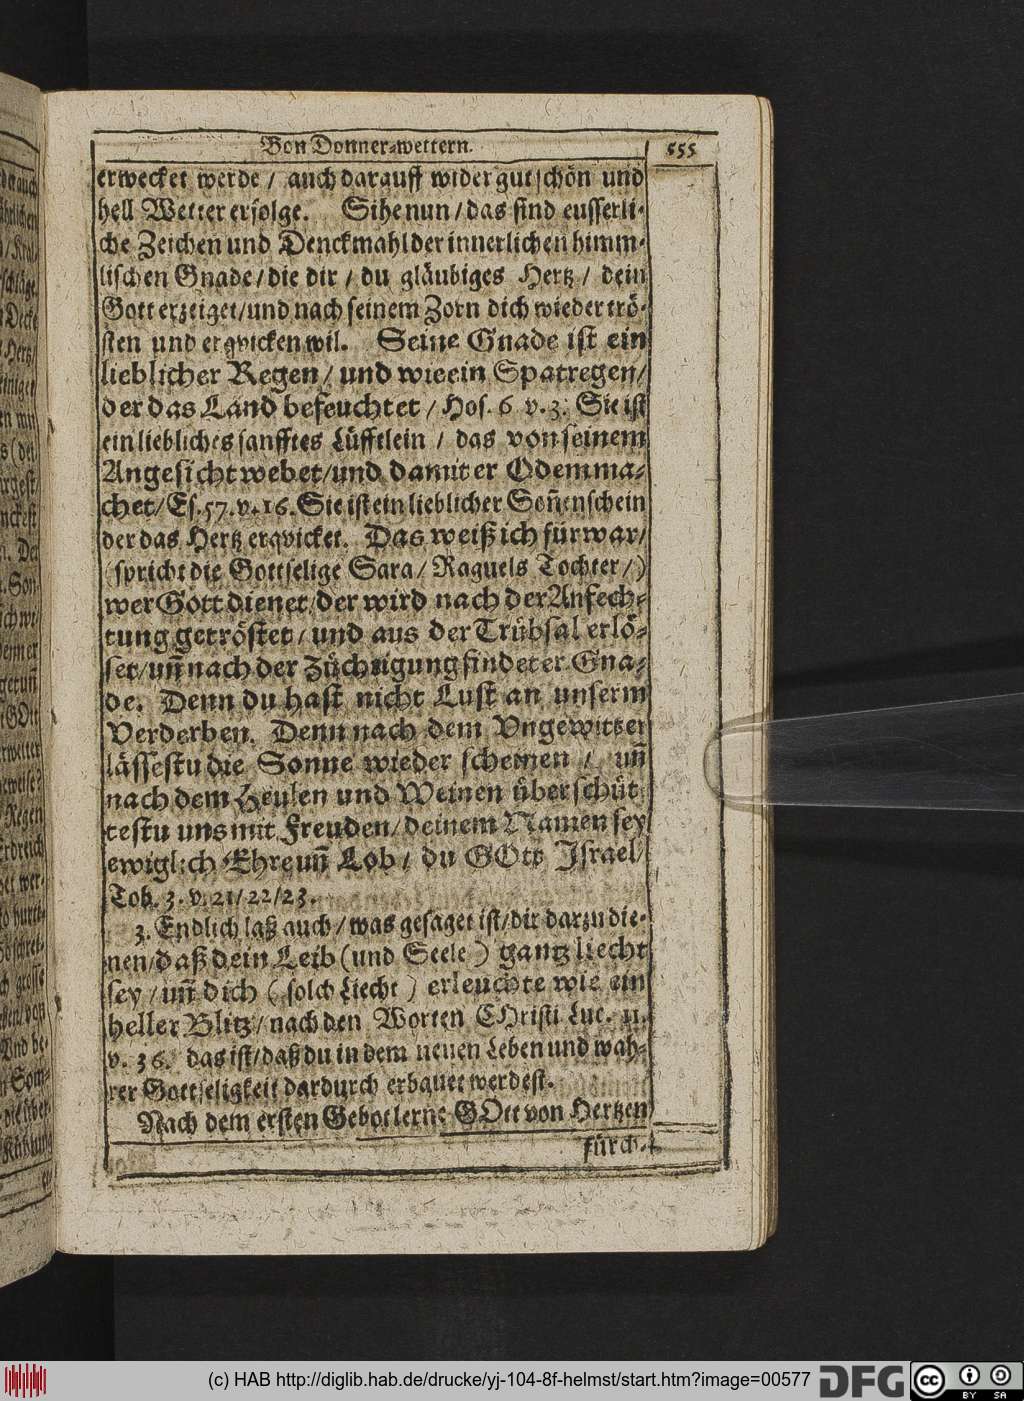 Von Donner-wettern.
555
erwecket werde / auch darauff wider gut schön und
hell Wetter erfolge. Sihe nun / das sind eusserli-
che Zeichen und Denckmahl der innerlichen himm-
lischen Gnade / die dir / du gläubiges Hertz / dein
Gott erzeiget / und nach seinem Zorn dich wieder trö-
sten und erqvicken wil. Seine Gnade ist ein
lieblicher Regen / und wie ein Spatregen /
der das Land befeuchtet / Hos. 6 v. 3. Sie ist
ein liebliches sanfftes Lüfftlein / das von seinem
Angesicht webet / und damit er Odem ma-
chet / Es. 57. v. 16. Sie ist ein lieblicher Soñenschein
der das Hertz erqvicket. Das weiß ich fürwar /
(spricht die Gottselige Sara / Raguels Tochter /)
wer Gott dienet / der wird nach der Anfech-
tung getröstet / und aus der Trübsal erlö-
set / uñ nach der Züchtigung findet er Gna-
de. Denn du hast nicht Lust an unserm
Verderben. Denn nach dem Ungewitter
lässestu die Sonne wieder scheinen / uñ
nach dem Heulen und Weinen überschüt-
testu uns mit Freuden / deinem Namen sey
ewiglich Ehre uñ Lob / du GOtt Israel /
Tob. 3. v. 21 / 22 / 23.
3. Endlich laß auch / was gesaget ist / dir darzu die-
nen / daß dein Leib (und Seele) gantz liecht
sey / uñ dich (solch Liecht) erleuchte wie ein
heller Blitz / nach den Worten CHristi Luc. 11.
v. 36. das ist / daß du in dem neuen Leben und wah-
rer Gottseligkeit dardurch erbauet werdest.
Nach dem ersten Gebot lerne GOtt von Hertzen
fürch-
(c) HAB http://diglib.hab.de/drucke/yj-104-8f-helmst/start.htm?image=00577
DFG
cc BY SA